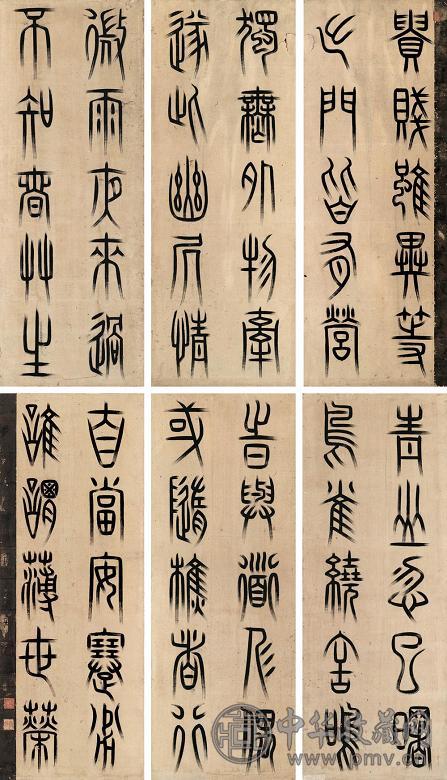 貴賤雖異等
出門皆有營
獨無外物牽
遂此幽居情
微雨夜來過
不知春草生
青山忽已曙
鳥雀繞舍鳴
時與道人偶
或隨樵者行
自當安蹇劣
誰謂薄世榮
中华收藏网
www.pmv.cn